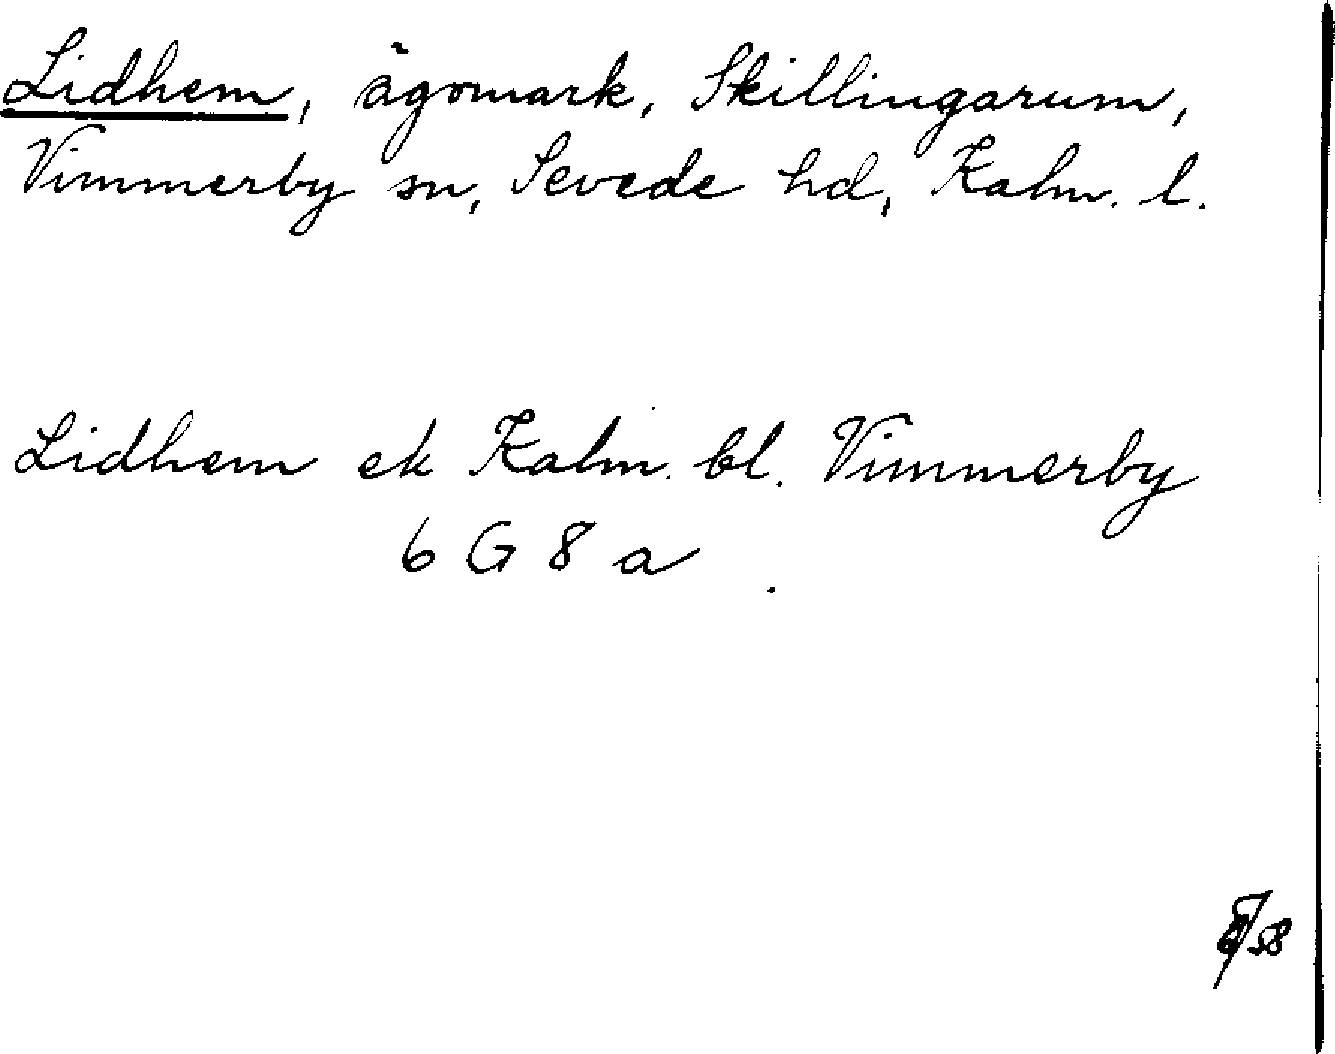 Lidhem, ägomark, Skillingarum,
Vimmerby sn, Sevede hd, Kalm. l.
Lidhem ek Kalm. bl. Vimmerby
6 G 8 a